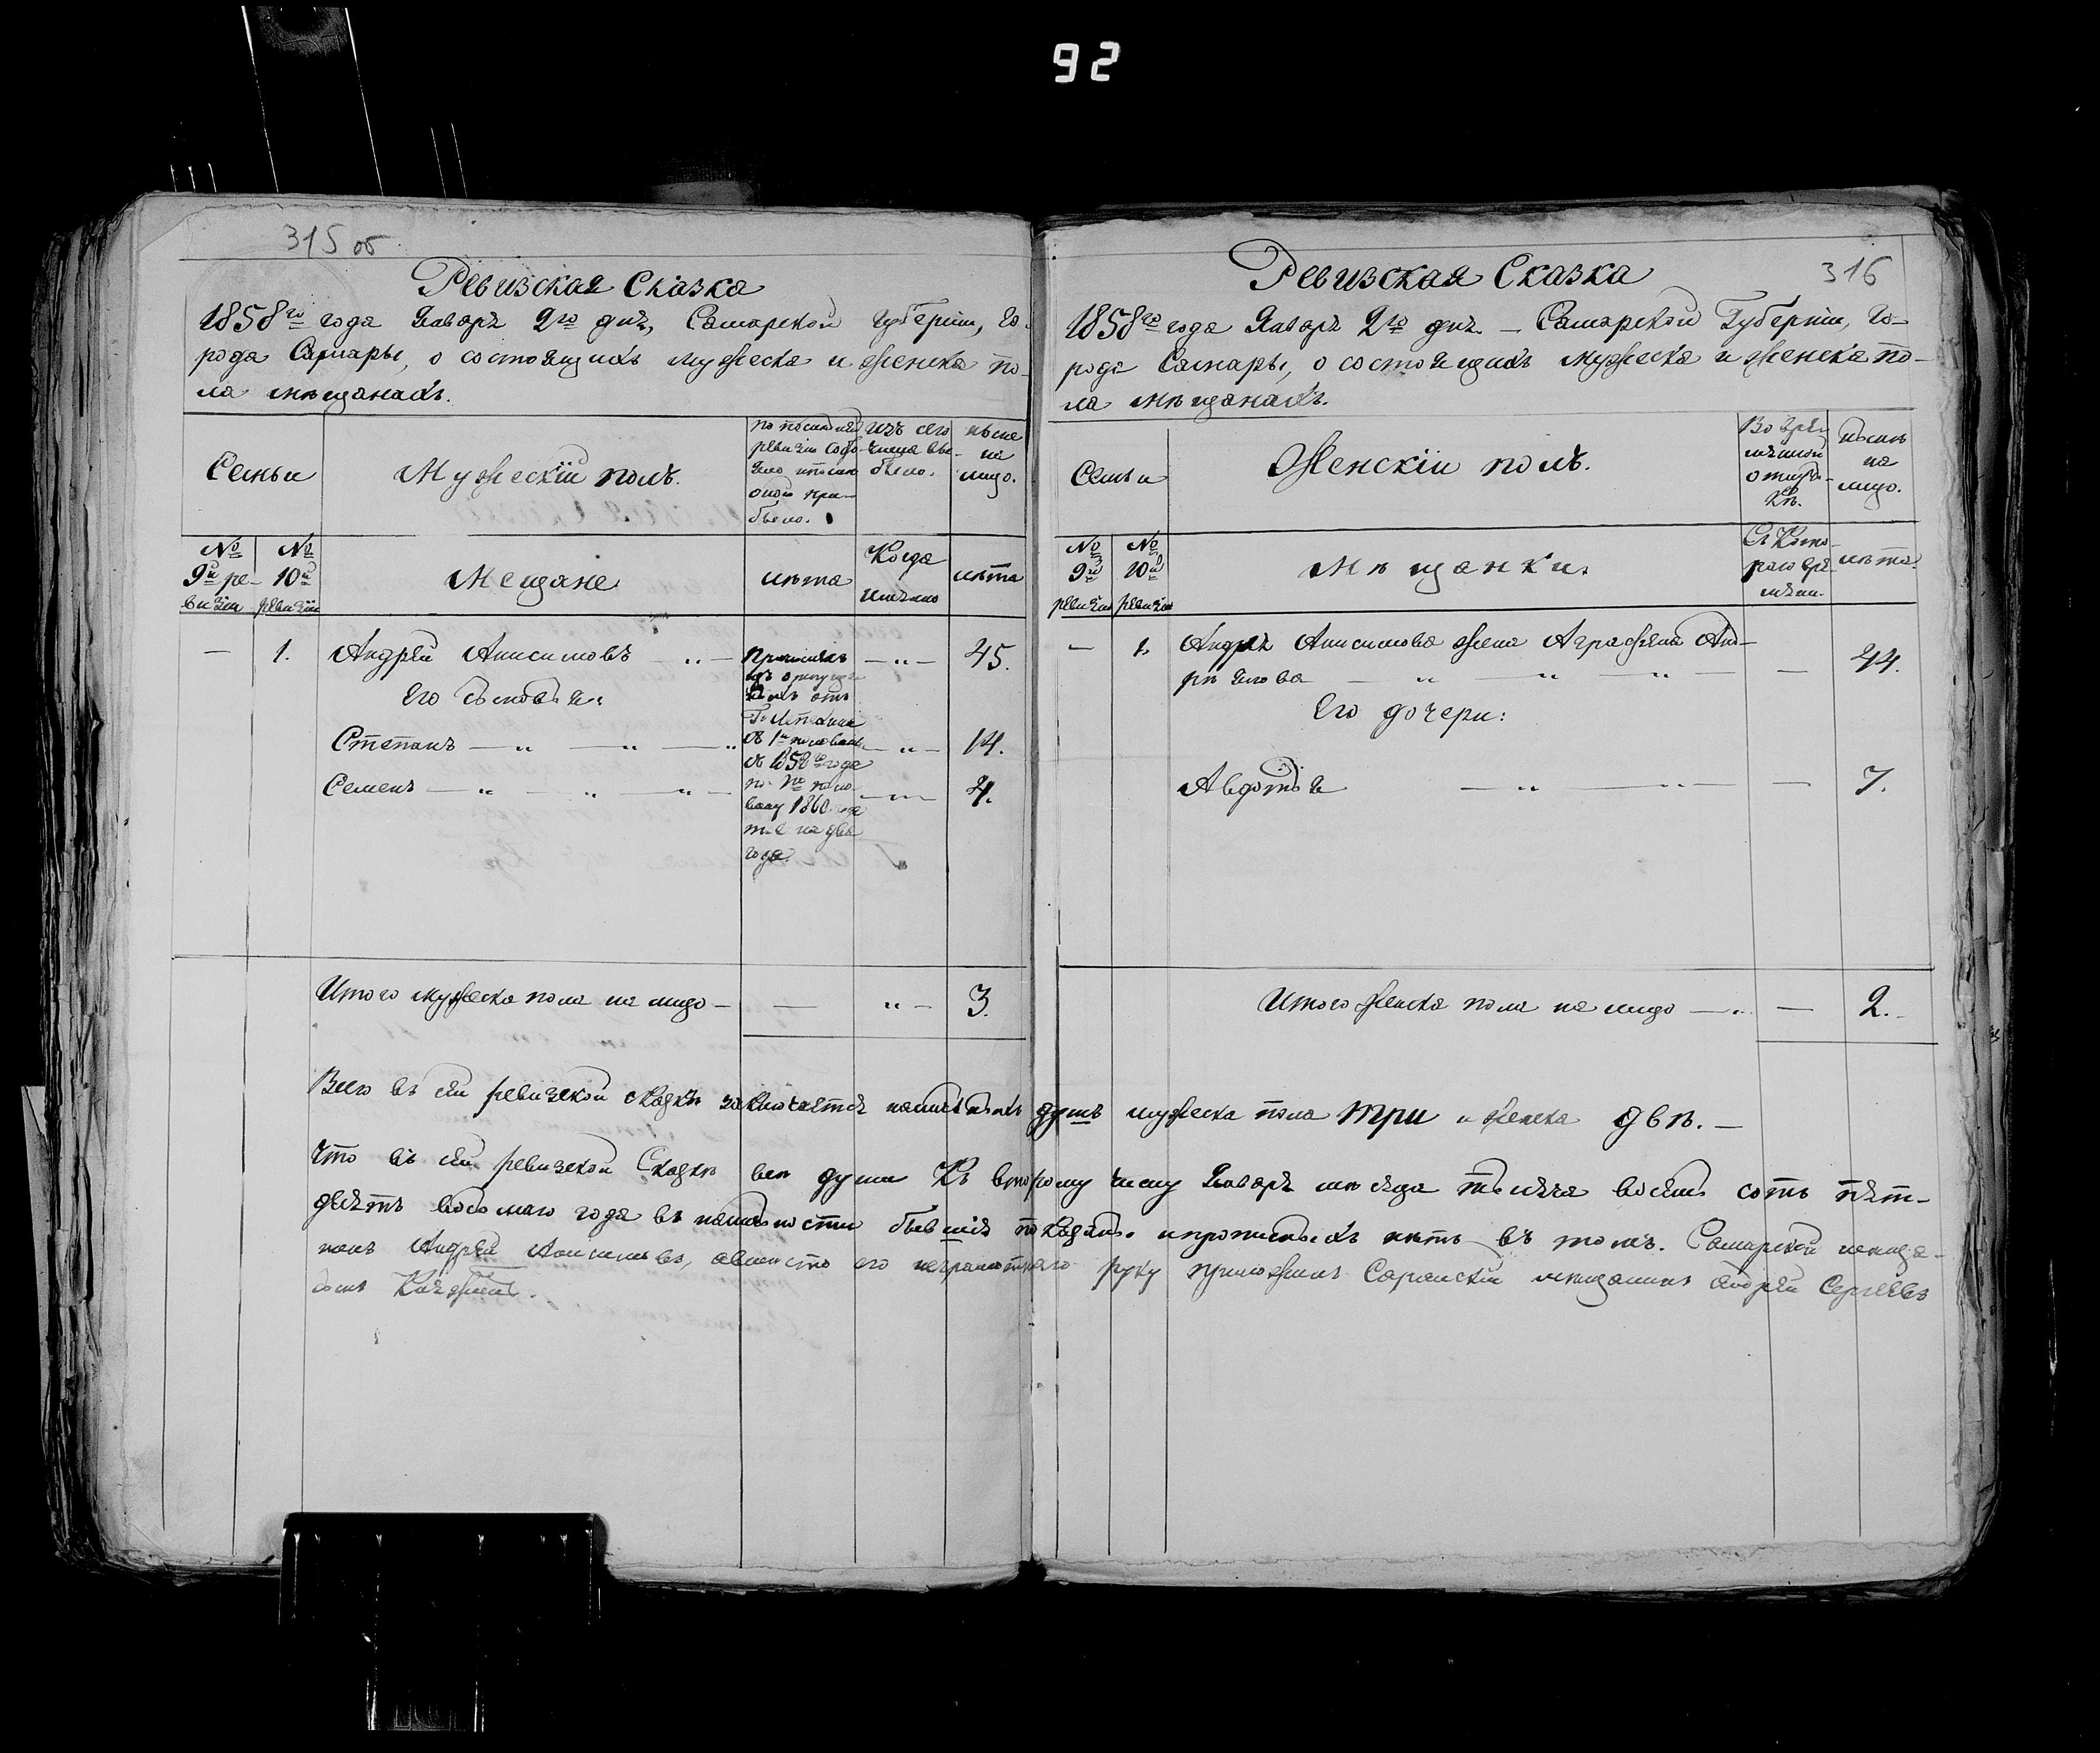 92
315 об
Ревизская Сказка
1858го года Января 2го дня, Самарской губерніи, Го-
рода Самары, о состоящихъ мужеска и женска по-
ла мѣщанахъ.
Семьи
Мужескій полъ.
по последней
ревизіи состо-
яло и после
оной при-
было.
Изъ сего
числа вы-
было.
ныне
на
лицо.
№ 9й ре-
визіи
№ 10й
ревизіи
Мещане
лѣта
Когда
именно
лѣта
— 1. Андрей Анисимовъ — „ — 45.
Его сыновья:
Степанъ — „ — „ — „ — „ — 14.
Семенъ — „ — „ — „ — 4.
Причисленъ
изъ отпущен
ныхъ отъ
съ 1й половины
1858го года
по 1ю поло
вину 1860 года
т. е. на два
года.
Итого мужеска пола на лицо — — „ — 3.
316
Ревизская Сказка
1858го года Января 2го дня — Самарской Губерніи, Го-
рода Самары, о состоящихъ мужеска и женска по-
ла мѣщанахъ.
Семьи
Женскій полъ.
Во вре-
менной
отлуч-
кѣ.
ныне
на
лицо.
№ 9й
ревизіи
№ 10й
ревизіи
Мѣщанки.
Съ Кото-
раго вре-
мени.
лѣта.
— 1. Андрея Анисимова жена Аграфена Анд-
рѣянова — „ — „ — „ — — 44.
Его дочери:
Авдотья — „ — „ — — 7.
Итого женска пола на лицо — „ — 2.
Всего въ сей ревизской сказкѣ заключается наличныхъ душъ мужеска пола три и женска двѣ. —
Что въ сей ревизской Сказкѣ всѣ души Къ второму числу Января мѣсяца тысяча восемь сотъ пять-
десятъ восьмаго года въ наличности бывшія показаны и прописныхъ нѣтъ въ томъ. Самарской меща-
нинъ Андрей Анисимовъ, а вместо его неграмотнаго руку приложилъ Саранскій мещанинъ Андрей Сергѣевъ
сынъ